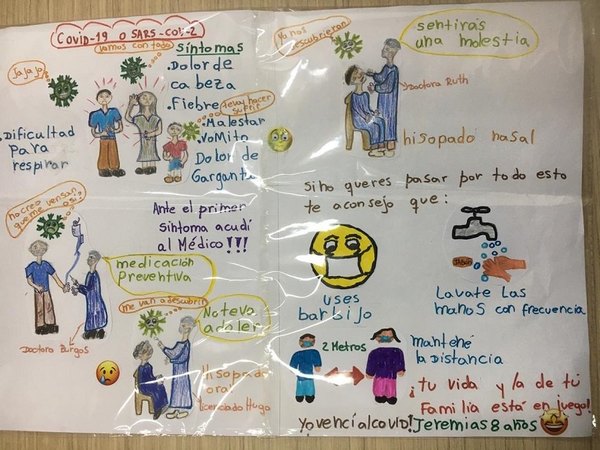 Covid-19 o SARS-CoV-2
Vamos con todo
Jajaja
Síntomas
.Dolor de
cabeza
.Fiebre
.Malestar
.Vomito
Dolor de
Garganta
.Dificultad
Para
respirar
te voy hacer
sufrir
Ante el primer
síntoma acudí
al Médico!!!
no creo
que me vensan
así
medicación
Preventiva
Doctora Burgos
me van a descubrir
No te va
a doler
Hisopado
oral
licenciado Hugo
Ya nos
descubrieron
sentirás
una molestia
Doctora Ruth
hisopado nasal
Si no queres pasar por todo esto
te aconsejo que:
uses
barbijo
Jabón
Lavate las
manos con frecuencia
2 Metros
mantené
la Distancia
¡tu vida y la de tú
Familia está en juego!
Yo vencí al covid!
Jeremias 8 años